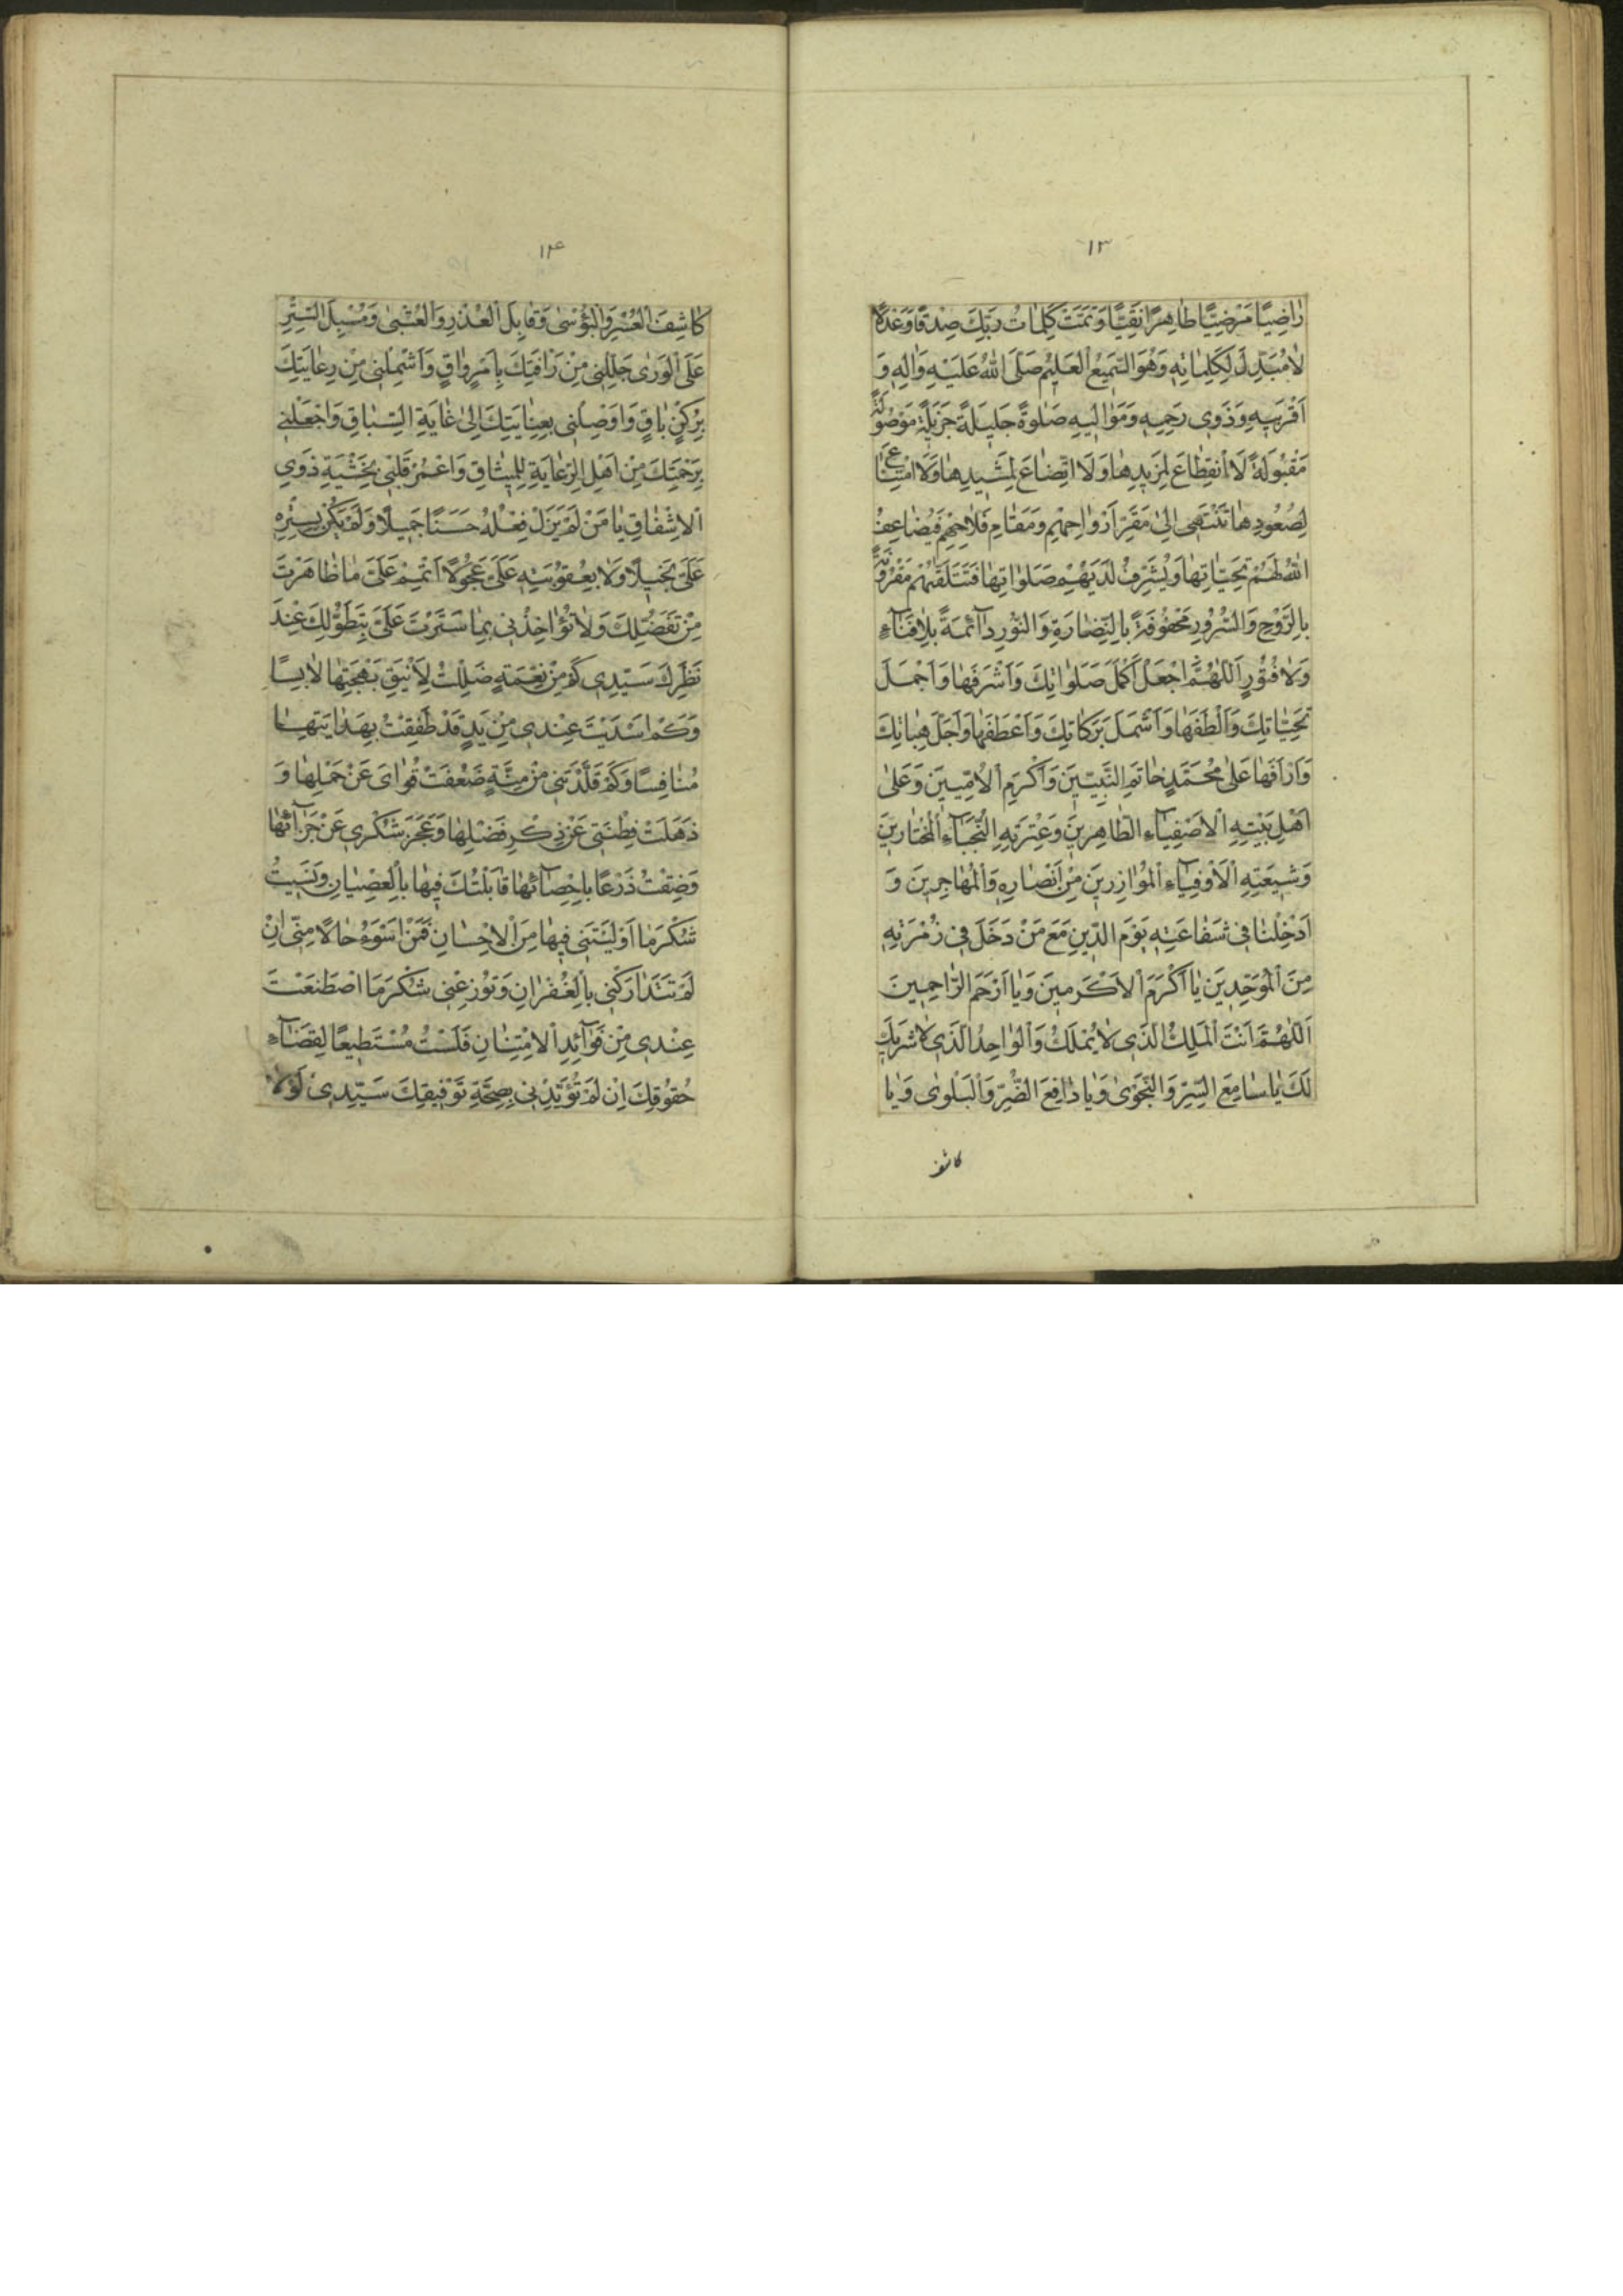 ١٣
رٰاضِيًا مَرْضِيًّا طٰاهِرًا نَقِيًّا وَتَمَّتْ كَلِمٰاتُ رَبِّكَ صِدْقًا وَعَدْلًا
لٰا مُبَدِّلَ لِكَلِمٰاتِهِ وَهُوَ السَّمِيعُ الْعَلِيمُ صَلَّى اللهُ عَلَيْهِ وَاٰلِهِ وَ
اَقْرَبِيهِ وَذَوِي رَحِمِهِ وَمَوٰالِيهِ صَلٰوةً جَلِيلَةً جَزِيلَةً مَوْصُولَةً
مَقْبُولَةً لَا انْقِطٰاعَ لِمَزِيدِهٰا وَلَا اتِّضٰاعَ لِمَشِيدِهٰا وَلَا امْتِنٰاعَ
لِصُعُودِهٰا تَنْتَهِي اِلىٰ مَقَرِّ اَرْوٰاحِهِمْ وَمَقٰامِ فَلٰاحِهِمْ فَيُضٰاعِفُ
اللهُ لَهُمْ تَحِيّٰاتِهٰا وَيُشَرِّفُ لَدَيْهِمْ صَلَوٰاتِهٰا فَتَتَلَقّٰهُمْ مَقْرُونَةً
بِالرَّوْحِ وَالسُّرُورِ مَحْفُوفَةً بِالنَّضٰارَةِ وَالنُّورِ دٰآئِمَةً بِلٰا فَنٰآءٍ
وَلٰا فُتُورٍ اَللّٰهُمَّ اجْعَلْ اَكْمَلَ صَلَوٰاتِكَ وَاَشْرَفَهٰا وَاَجْمَلَ
تَحِيّٰاتِكَ وَاَلْطَفَهٰا وَاَشْمَلَ بَرَكٰاتِكَ وَاَعْطَفَهٰا وَاَجَلَّ هِبٰاتِكَ
وَاَرْاَفَهٰا عَلىٰ مُحَمَّدٍ خٰاتَمِ النَّبِيّينَ وَاَكْرَمِ الْاُمِّيِّينَ وَعَلىٰ
اَهْلِ بَيْتِهِ الْاَصْفِيٰآءِ الطّٰاهِرِينَ وَعِتْرَتِهِ النُّجَبٰآءِ الْمُخْتٰارِينَ
وَشِيعَتِهِ الْاَوْفِيٰآءِ الْمُوٰازِرِينَ مِنْ اَنْصٰارِهِ وَالْمُهٰاجِرِينَ وَ
اَدْخِلْنٰا فِي شَفٰاعَتِهِ يَوْمَ الدِّينِ مَعَ مَنْ دَخَلَ فِي زُمْرَتِهِ
مِنَ الْمُوَحِّدِينَ يٰا اَكْرَمَ الْاَكْرَمِينَ وَيٰا اَرْحَمَ الرّٰاحِمِينَ
اَللّٰهُمَّ اَنْتَ الْمَلِكُ الَّذِي لٰا يُمْلَكُ وَالْوٰاحِدُ الَّذِي لٰا شَرِيكَ
لَكَ يٰا سٰامِعَ السِّرِّ وَالنَّجْوىٰ وَيٰا دٰافِعَ الضُّرِّ وَالْبَلْوىٰ وَيٰا
كاشف
١٤
كٰاشِفَ الْعُسْرِ وَالْبُؤْسىٰ وَقٰابِلَ الْعُذْرِ وَالْعُتْبىٰ وَمُسْبِلَ السِّتْرِ
عَلَى الْوَرىٰ جَلِّلْنِي مِنْ رَأْفَتِكَ بِاَمْرٍ وٰاقٍ وَاشْمِلْنِي مِنْ رِعٰايَتِكَ
بِرُكْنٍ بٰاقٍ وَاَوْصِلْنِي بِعِنٰايَتِكَ اِلىٰ غٰايَةِ السِّبٰاقِ وَاجْعَلْنِي
بِرَحْمَتِكَ مِنْ اَهْلِ الرِّعٰايَةِ لِلْمِيثٰاقِ وَاعْمُرْ قَلْبِي بِخَشْيَةِ ذَوِي
الْاِشْفٰاقِ يٰا مَنْ لَمْ يَزَلْ فِعْلُهُ حَسَنًا جَمِيلًا وَلَمْ يَكُنْ بِسِتْرِهِ
عَلَيَّ بَخِيلًا وَلَا بِعُقُوبَتِهِ عَلَيَّ عَجُولًا اَتْمِمْ عَلَيَّ مٰا ظٰاهَرْتَ
مِنْ تَفَضُّلِكَ وَلٰا تُؤٰاخِذْنِي بِمٰا سَتَرْتَ عَلَيَّ بِتَطَوُّلِكَ عِنْدَ
نَظَرِكَ سَيِّدِي كَمْ مِنْ نِعْمَةٍ ضَلَلْتُ لِاَنِيقِ بَهْجَتِهٰا لٰابِسًا
وَكَمْ اَسْدَيْتَ عِنْدِي مِنْ يَدٍ قَدْ طَفِقْتُ بِهَدٰايَتِهٰا
مُنٰافِسًا وَكَمْ قَلَّدْتَنِي مِنْ مِنَّةٍ ضَعُفَتْ قُوٰايَ عَنْ حَمْلِهٰا وَ
ذَهَلَتْ فِطْنَتِي عَنْ ذِكْرِ فَضْلِهٰا وَعَجَزَ شُكْرِي عَنْ جَزٰآئِهٰا
وَضِقْتُ ذَرْعًا بِاِحْصٰآئِهٰا قٰابَلْتُكَ فِيهٰا بِالْعِصْيٰانِ وَنَسِيتُ
شُكْرَ مٰا اَوْلَيْتَنِي فِيهٰا مِنَ الْاِحْسٰانِ فَمَنْ اَسْوَءُ حٰالًا مِنِّي اِنْ
لَمْ تَتَدٰارَكْنِي بِالْغُفْرٰانِ وَتُوزِعْنِي شُكْرَ مَا اصْطَنَعْتَ
عِنْدِي مِنْ فَوٰآئِدِ الْاِمْتِنٰانِ فَلَسْتُ مُسْتَطِيعًا لِقَضٰآءِ
حُقُوقِكَ اِنْ لَمْ تُؤَيِّدْنِي بِصِحَّةِ تَوْفِيقِكَ سَيِّدِي لَوْلٰا